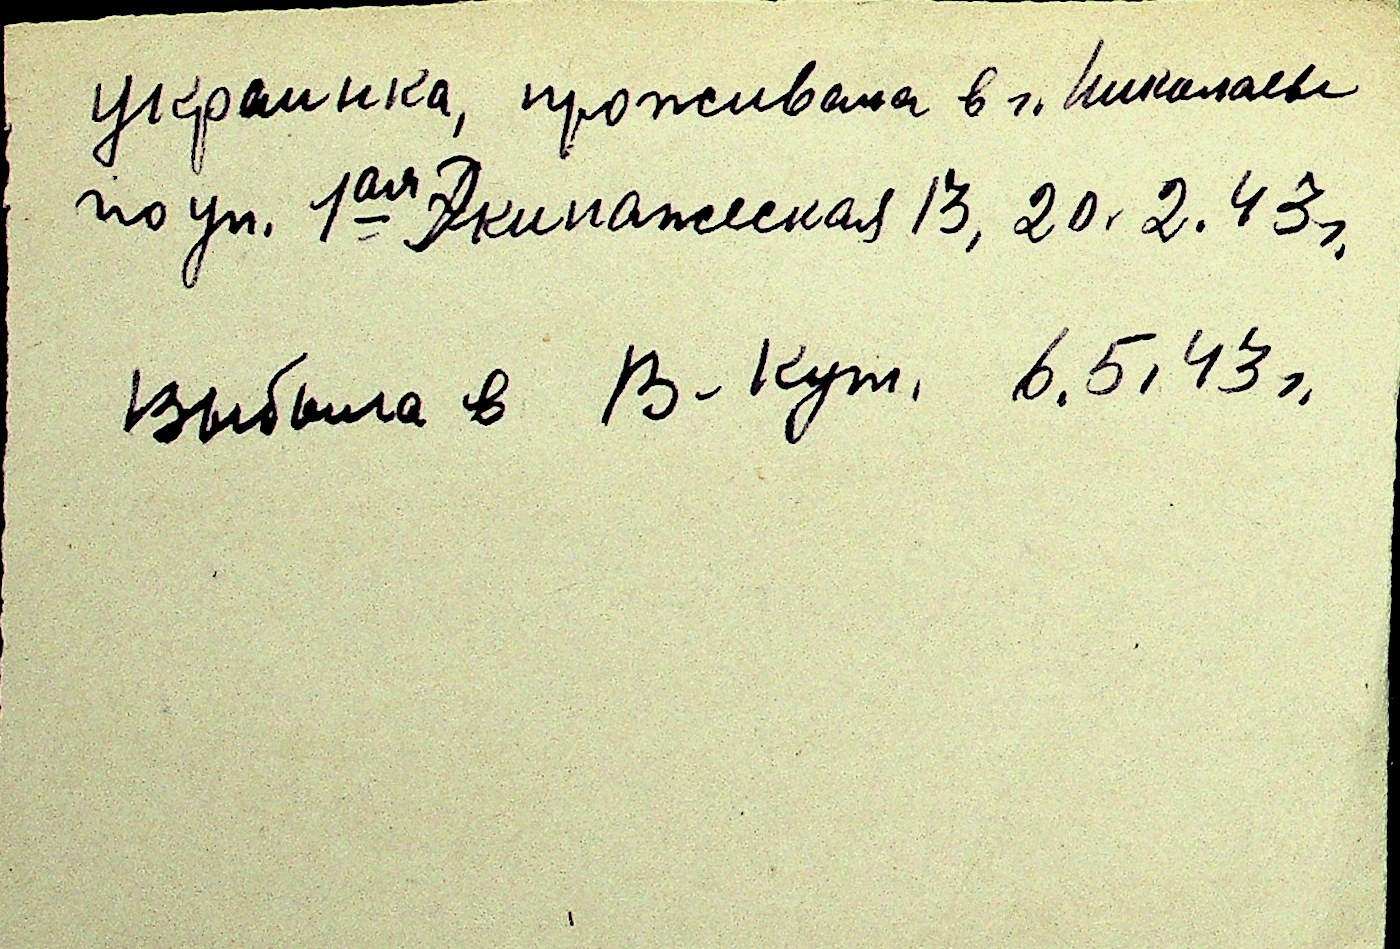 украинка, проживала в г. Николаеве
по ул. 1ая Экипажеская 13, 20.2.43г.
Выбыла в В-Кут. 6.5.43г.